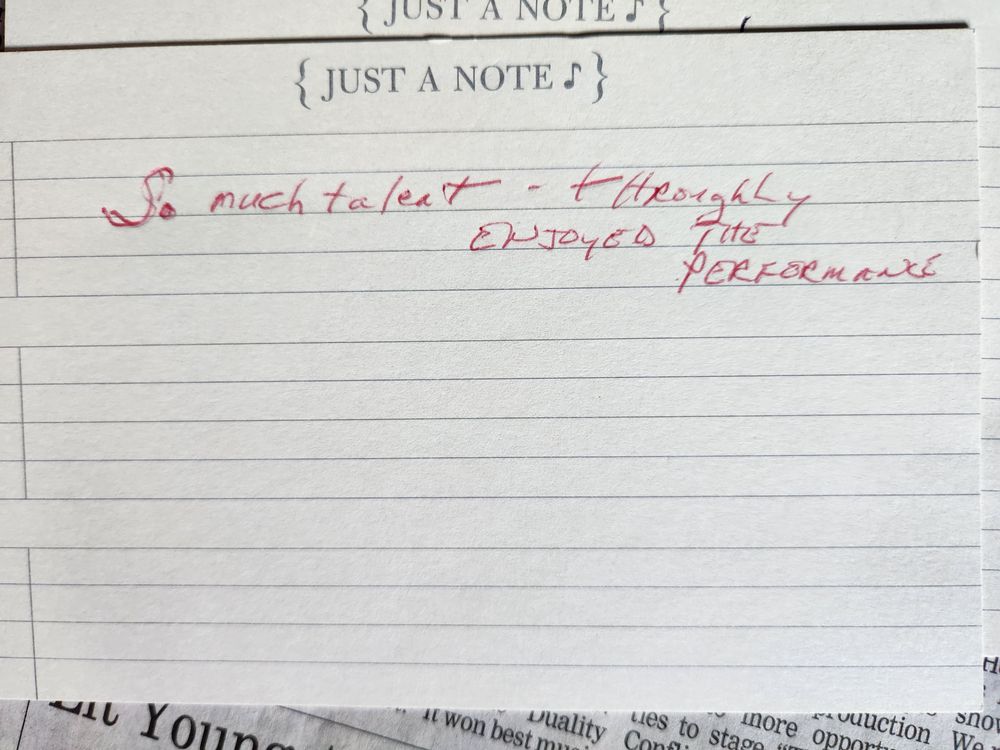 { JUST A NOTE ♪ }
{ JUST A NOTE ♪ }
So much talent - thRoughly
ENJOYED THE
PERFORMANCE
Young
it won best
Duality
ties to stage
more
production We